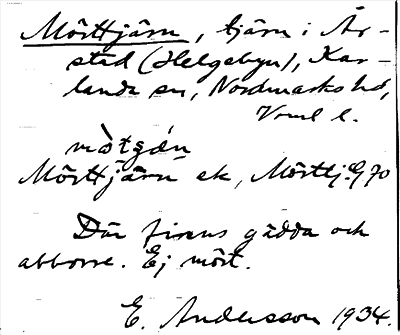 Mörttjärn, tjärn i År-
stad (Helgebyn), Kar-
landa sn, Nordmarks hd,
Vrml l.
mo᷆tʒæ̀ṇ
Mörttjärn ek, Mörttj. G 70
Där finns gädda och
abborre. Ej mört.
E. Andersson 1934.